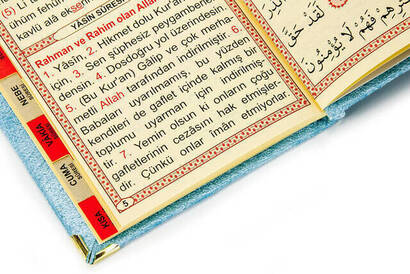 (5) Li
ühüm fehüm
kavlü alâ ekse
YASİN SURESİ
Rahman ve Rahim olan Alla
1. Yâsin. 2. Hikmet dolu Kur'an
3. Sen şüphesiz peygamberle
densin. 4. Dosdoğru yol üzerindesin.
5. (Bu Kur'an) Gâlip ve çok merha
metli Allah tarafından indirilmiştir. 6.
Babaları uyarılmamış, bu yüzden
kendileri de gaflet içinde kalmış bir
toplumu uyarman için indirilmiş-
tir. 7. Yemin olsun ki onların çoğu
gafletlerinin cezasını hak etmişler-
dir. Çünkü onlar îmân etmiyorlar.
5
NEBE
SURESİ
VAKIA
CUMA
SURESİ
KISA